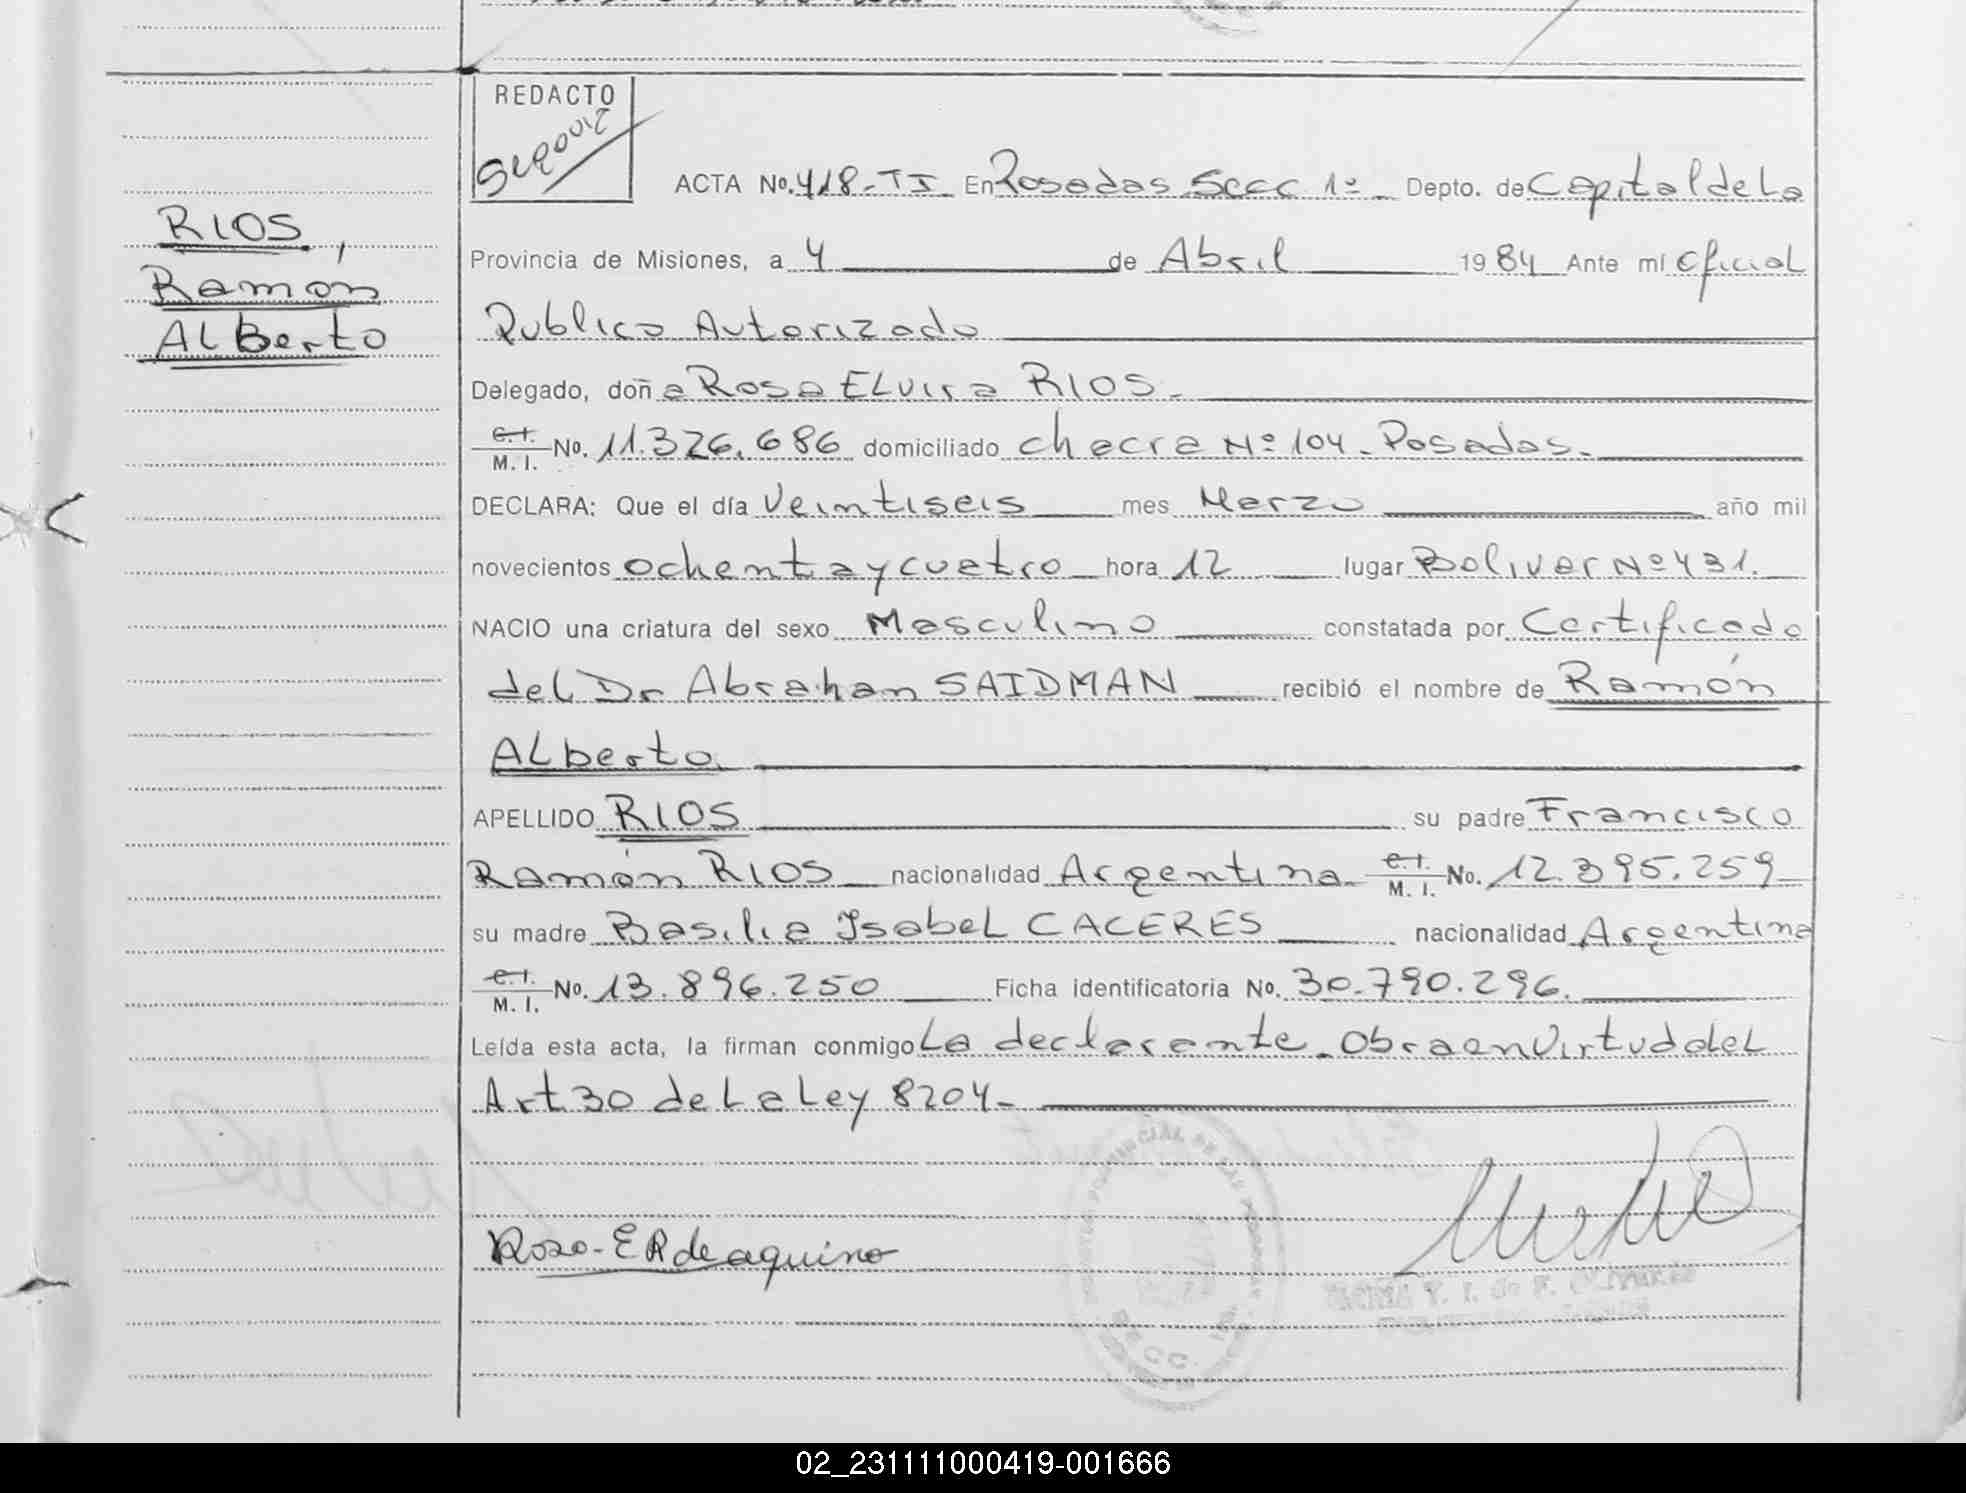 REDACTO
ACTA No. 418-TI En Posadas Secc 1º Depto. de Capital de La
RIOS,
Provincia de Misiones, a 4 de Abril 1984 Ante mí Oficial
Ramon
Publico Autorizado
Alberto
Delegado, doña Rosa Elvira RIOS.
C.I. M.I. No. 11.326.686 domiciliado Chacra Nº 104. Posadas.
DECLARA: Que el día Veintiseis mes Marzo año mil
novecientos ochenta y cuatro hora 12 lugar Bolivar Nº 431.
NACIO una criatura del sexo Masculino constatada por Certificado
del Dr Abrahan SAIDMAN recibió el nombre de Ramón
Alberto
APELLIDO RIOS su padre Francisco
Ramón RIOS nacionalidad Argentina C.I. M.I. No. 12.395.259
su madre Basilia Isabel CACERES nacionalidad Argentina
C.I. M.I. No. 13.896.250 Ficha identificatoria No. 30.790.296.
Leída esta acta, la firman conmigo La declarante. Obra en Virtud del
Art 30 de La Ley 8204-
Rosa-E R de aquino
02_231111000419-001666